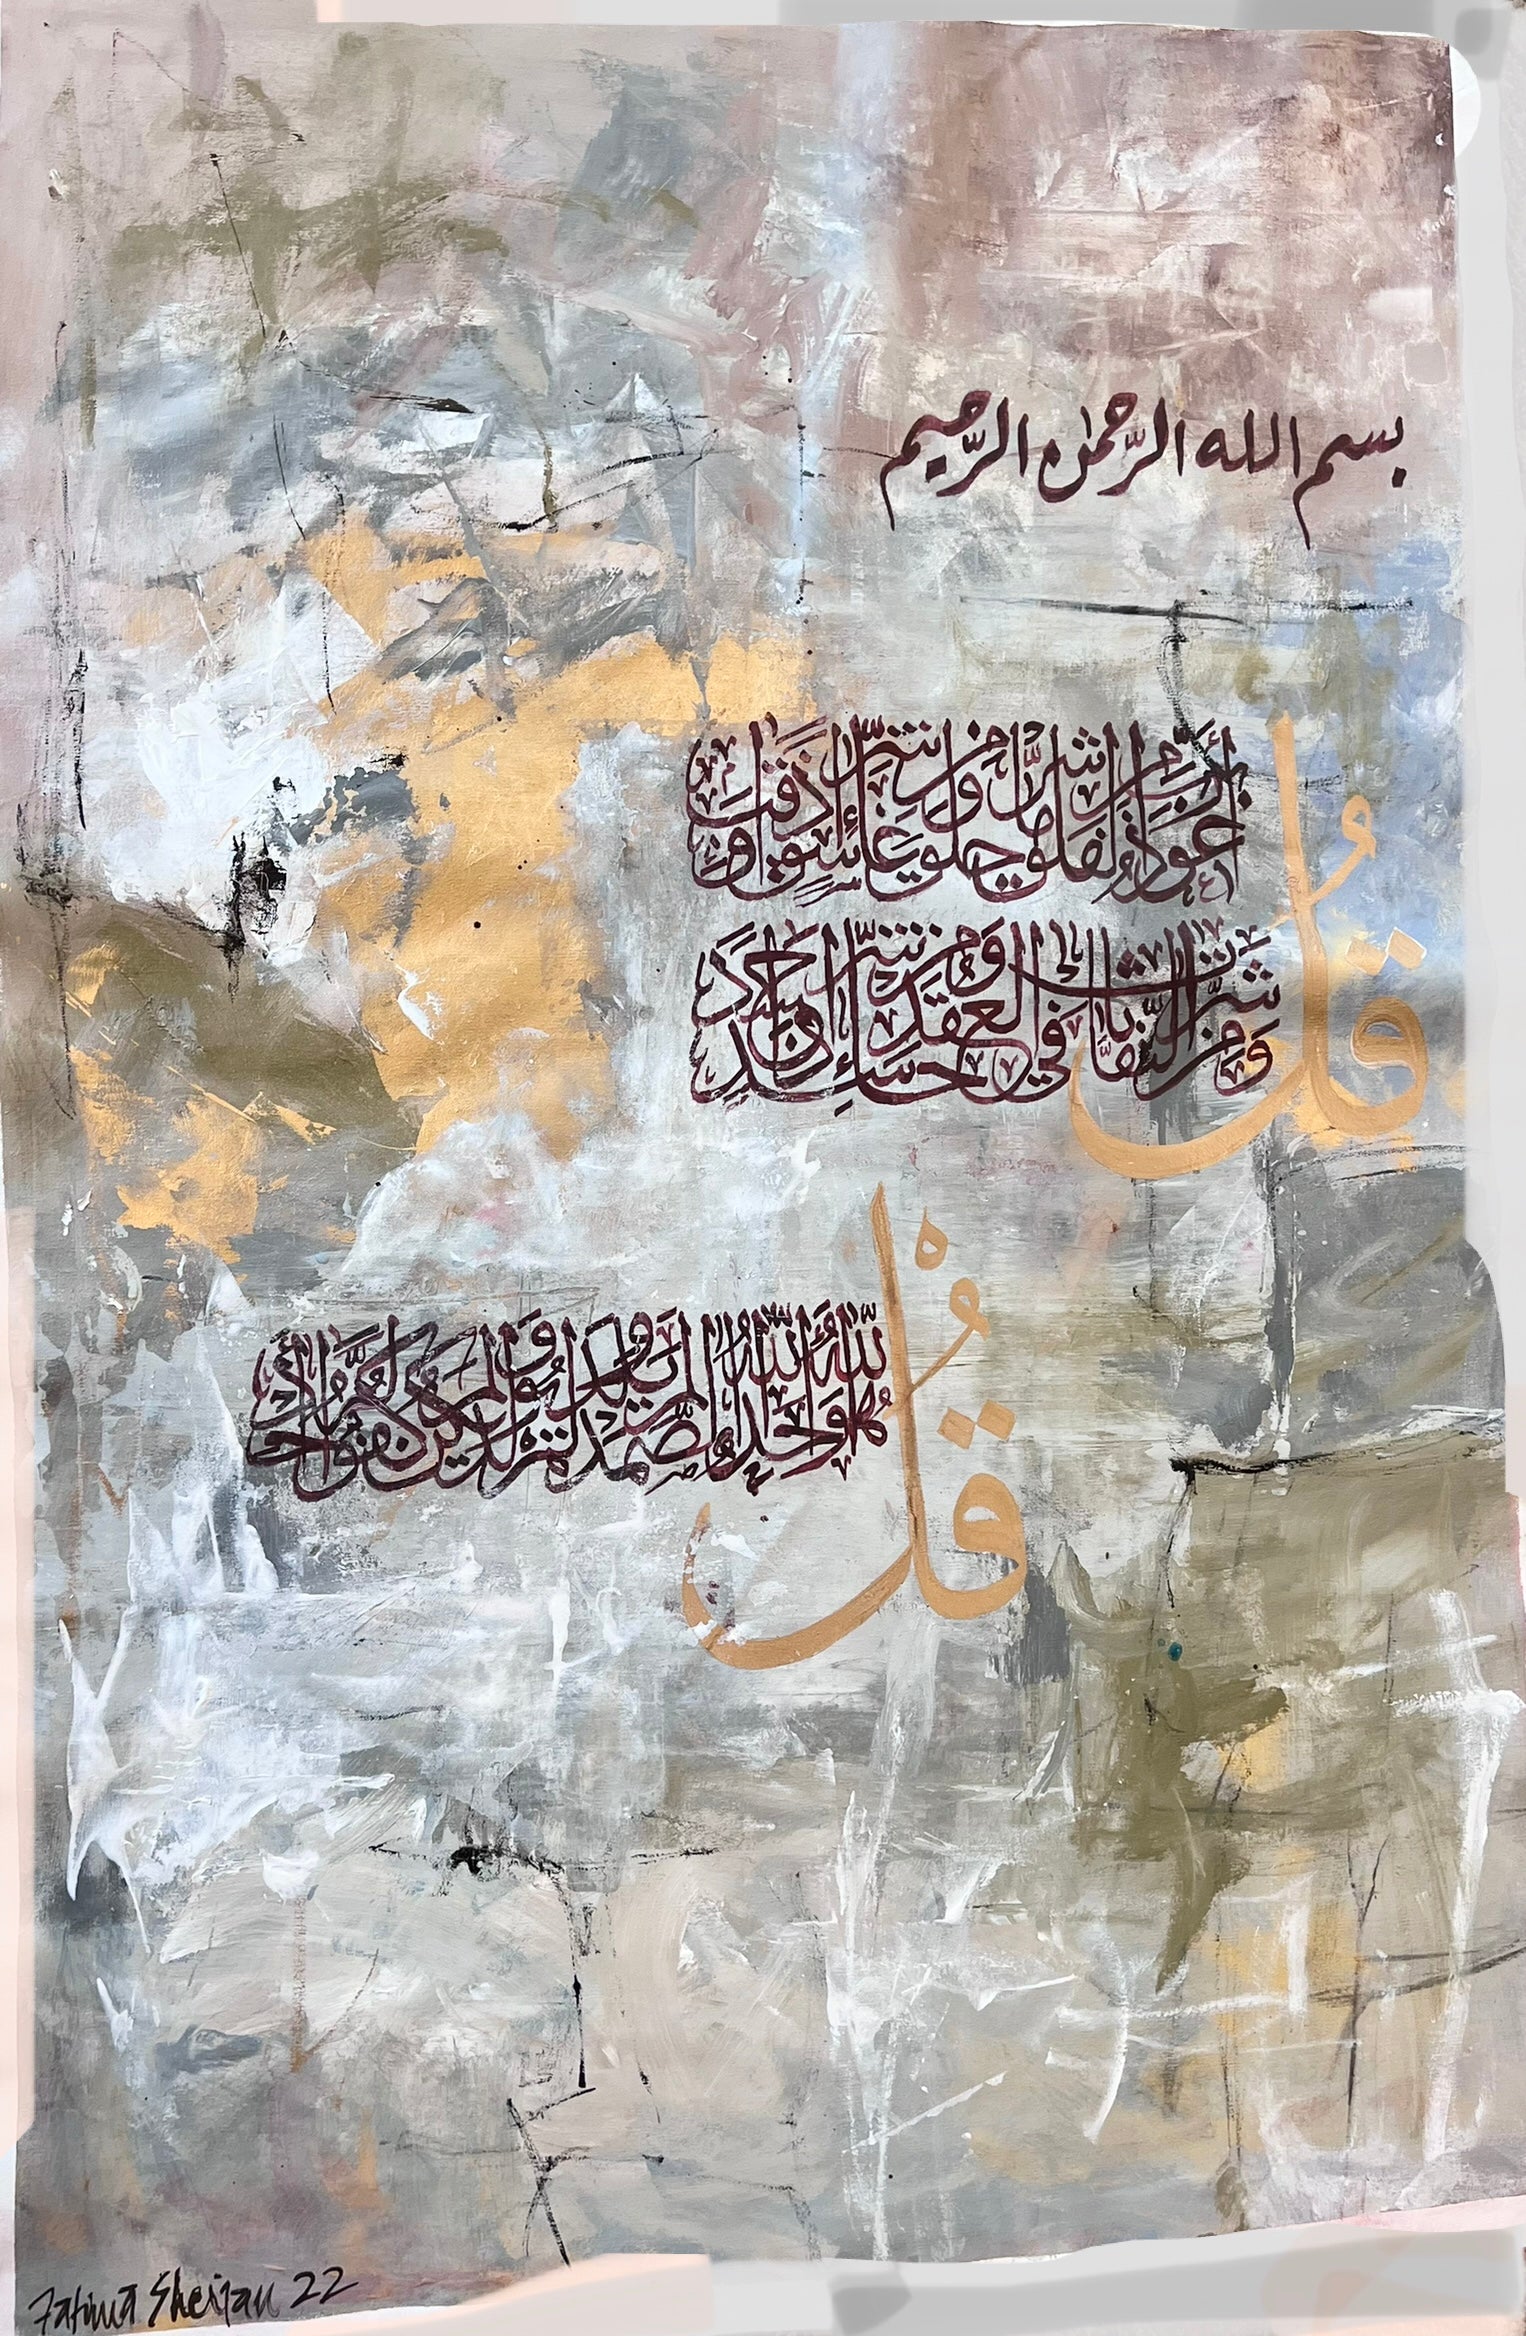 بسم الله الرَّحمٰن الرَّحيم
قُل أَعُوذُ بِرَبِّ الْفَلَقِ مِن شَرِّ مَا خَلَقَ وَمِن شَرِّ غَاسِقٍ إِذَا وَقَبَ
وَمِن شَرِّ النَّفَّاثَاتِ فِي الْعُقَدِ وَمِن شَرِّ حَاسِدٍ إِذَا حَسَدَ
قُل هُوَ اللَّهُ أَحَدٌ اللَّهُ الصَّمَدُ لَمْ يَلِدْ وَلَمْ يُولَدْ وَلَمْ يَكُن لَّهُ كُفُوًا أَحَدٌ
Fatima 22